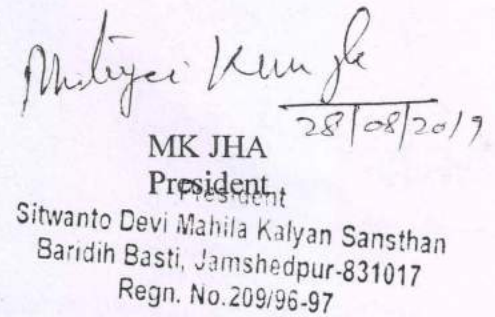 28/08/2019
MK JHA
President
President
Sitwanto Devi Mahila Kalyan Sansthan
Baridih Basti, Jamshedpur-831017
Regn. No.209/96-97